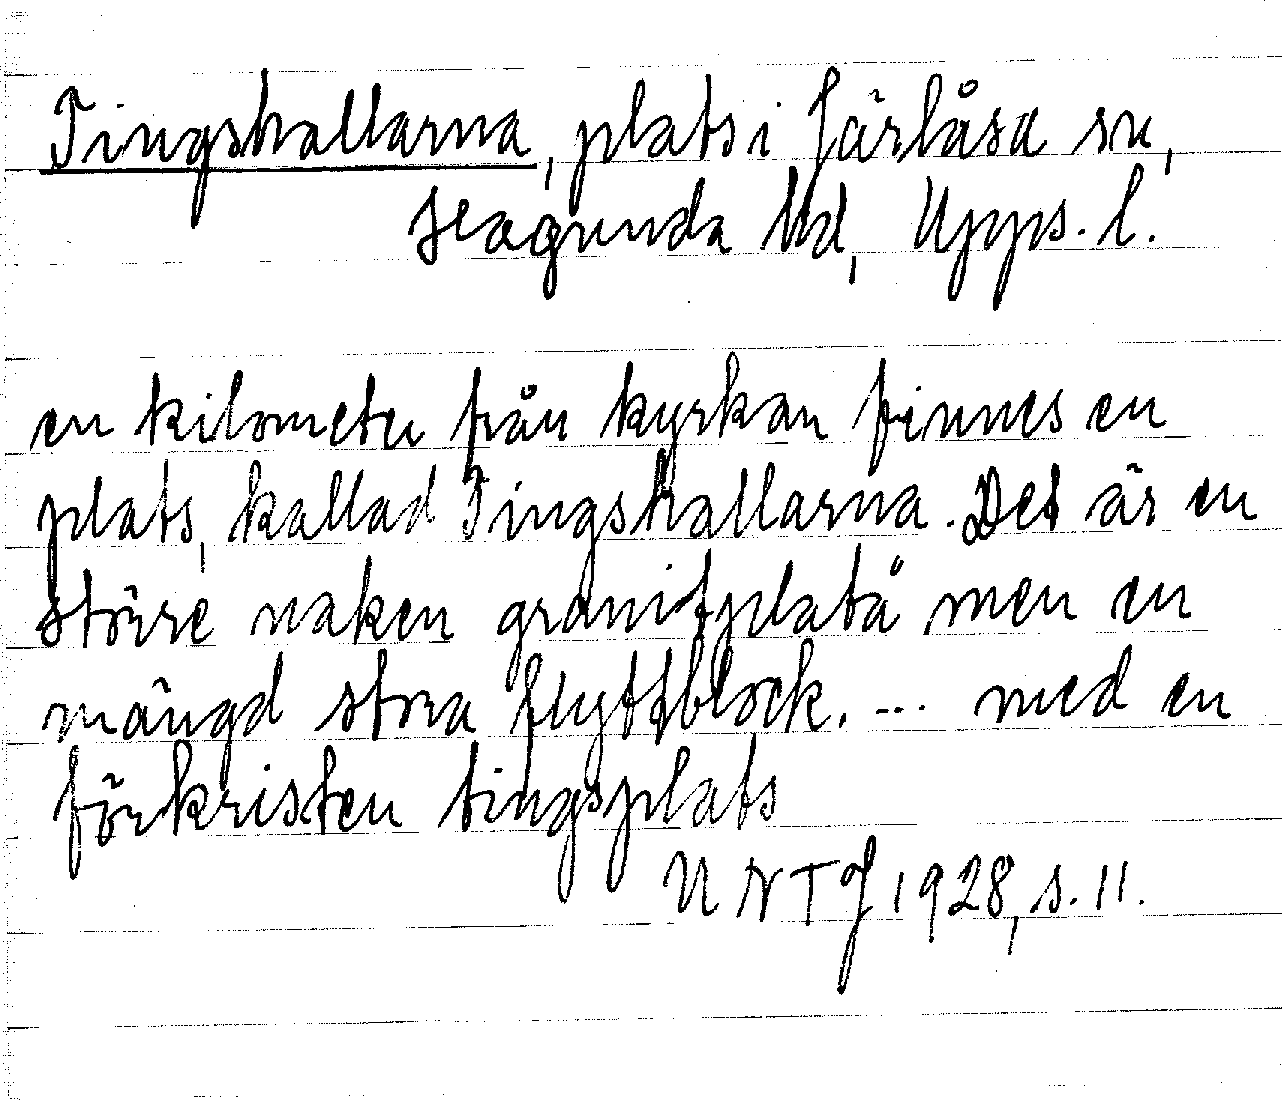 Tingshallarna, plats i Järlåsa sn,
Hagunda hd, Upps. l.
en kilometer från kyrkan finnes en
plats, kallad Tingshallarna. Det är en
större naken granitplatå men en
mängd stora flyttblock. ... med en
förkristen tingsplats
UNTJ 1928, s. 11.